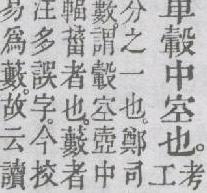 車轂中空也。考
工
分之一也。鄭司
數。謂轂空壺中
輻菑者也。藪者
注多誤字。今挍
易爲藪。故云讀